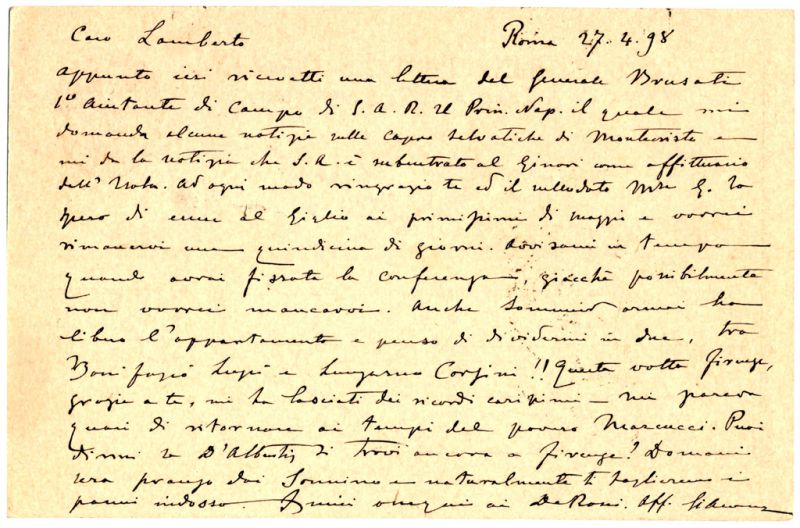 Caro Lamberto Roma 27.4.98
Appunto ieri ricevetti una lettera del Generale Brusati
1º Aiutante di Campo di S.A.R. il Prin. Nap. il quale mi
domanda alcune notizie sulle capre selvatiche di Montecristo e
mi da la notizia che S.A. è subentrato al Ginori come affittuario
dell'Isola. Ad ogni modo ringrazio te ed il sullodato Mse G. Io
spero di essere al Giglio ai primissimi di maggio e vorrei
rimanervi una quindicina di giorni. Avvisami in tempo
quando avrai fissata la conferenza, giacchè possibilmente
non vorrei mancarvi. Anche Sommier ormai ha
libero l'appartamento e penso di dividermi in due, tra
Bonifazio Lupi e Lungarno Corsini!! Questa volta Firenze,
grazie a te, mi ha lasciati dei ricordi carissimi – mi pareva
quasi di ritornare ai tempi del povero Marcucci. Puoi
dirmi se D'Albertis si trovi ancora a Firenze? Domani
sera pranzo dai Sonnino e naturalmente ti taglieremo i
panni indosso. Amici ossequi ai De Rossi. Aff.